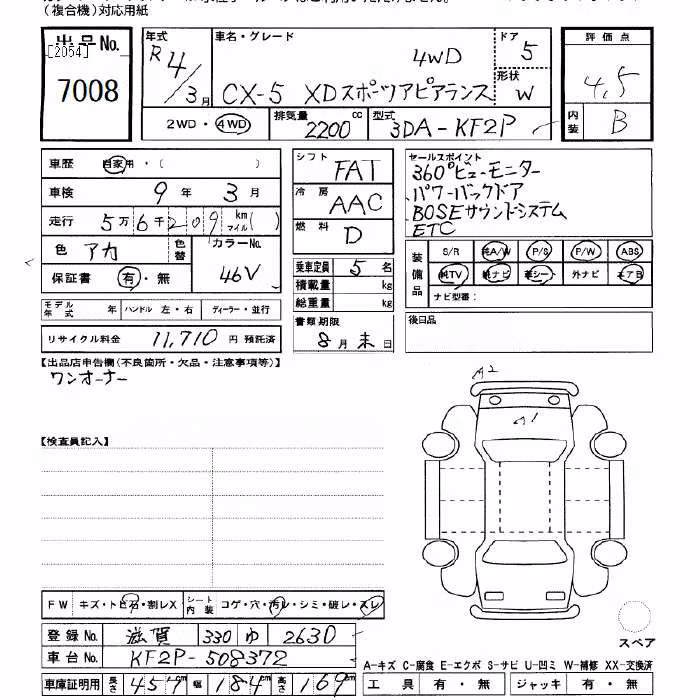 (複合機)対応用紙
出品No.
[2054]
7008
年式 R4/3月
車名・グレード
4WD
CX-5 XDスポーツアピアランス
ドア 5
形状 W
2WD・4WD
排気量 2200 cc
型式 3DA-KF2P
評価点
4.5
内装 B
車歴 自家用・( )
車検 9年3月
走行 5万6千209 km マイル( )
色 アカ
色替
カラーNo. 46V
保証書 有・無
シフト FAT
冷房 AAC
燃料 D
セールスポイント
360°ビューモニター
パワーバックドア
BOSEサウンドシステム
ETC
装備品
S/R 純A/W P/S P/W ABS
純TV 純ナビ 革シート 外ナビ エアB
ナビ型番:
乗車定員 5名
積載量 kg
総重量 kg
モデル年式 年 ハンドル 左・右 ディーラー・並行
リサイクル料金 11,710 円 預託済
書類期限
8月末日
後日品
【出品店申告欄(不良箇所・欠品・注意事項等)】
ワンオーナー
【検査員記入】
A2
A1
FW キズ・トビ石・割レX シート内装 コゲ・穴・汚レ・シミ・破レ・スレ
登録No. 滋賀 330 ゆ 2630
車台No. KF2P-508372
車庫証明用 長さ 457cm 幅 184cm 高さ 169cm
スペア
A-キズ C-腐食 E-エクボ S-サビ U-凹ミ W-補修 XX-交換済
工具 有・無 ジャッキ 有・無